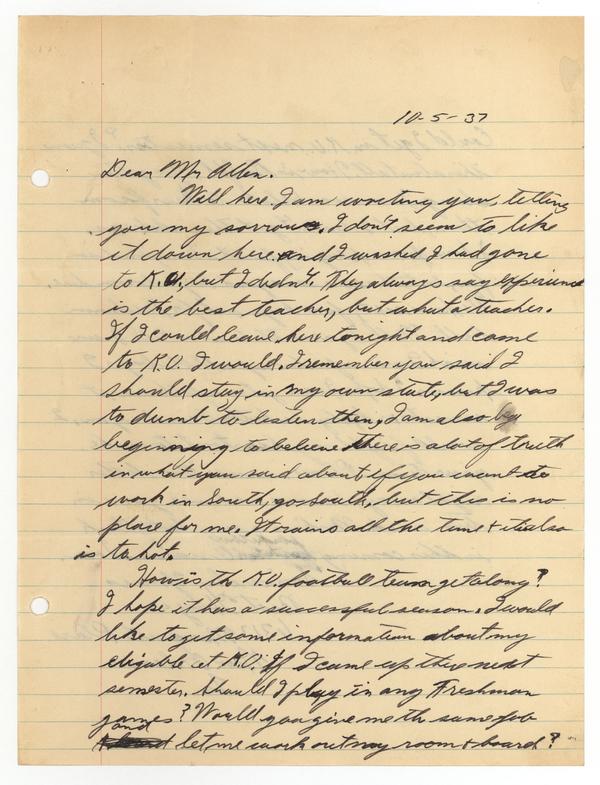 10-5-37
Dear Mr Allen.
Well here I am writing you, telling
you my sorrows. I don't seem to like
it down here and I wished I had gone
to K.U. but I didn't. They always say experience
is the best teacher, but what a teacher.
If I could leave here tonight and come
to K.U. I would. I remember you said I
should stay in my own state, but I was
to dumb to listen then, I am also
beginning to believe there is a lot of truth
in what you said about if you want to
work in South, go South, but this is no
place for me. It rains all the time + it also
is to hot.
How is the K.U. football team getalong?
I hope it has a successful season. I would
like to get some information about my
eligable at K.U. If I came up the next
semester. Should I play in any Freshman
games? Would you give me th same job
and let me work out my room + board?